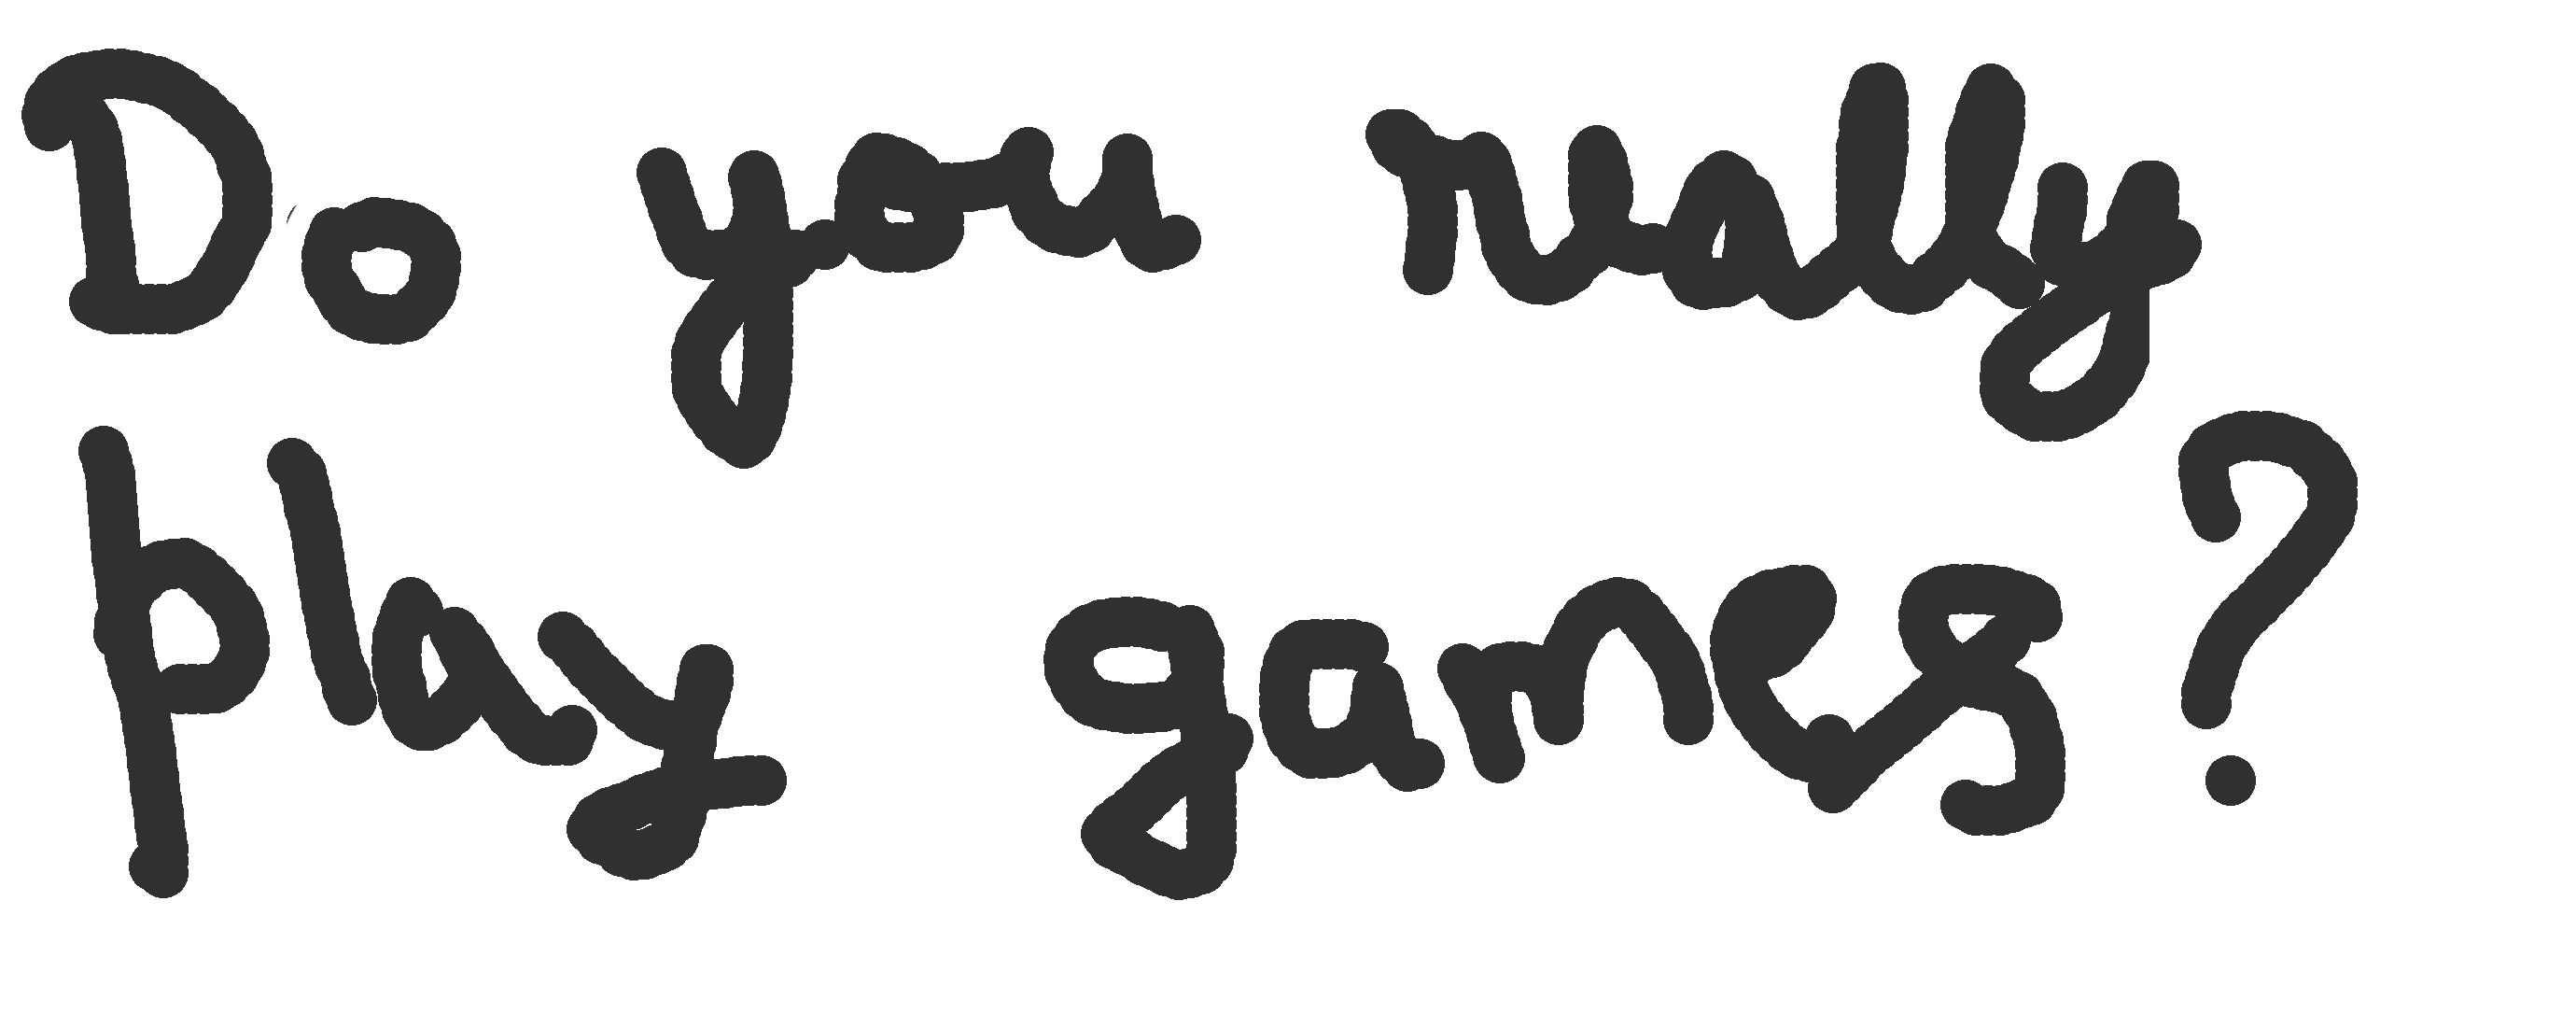 Do you really
play games?